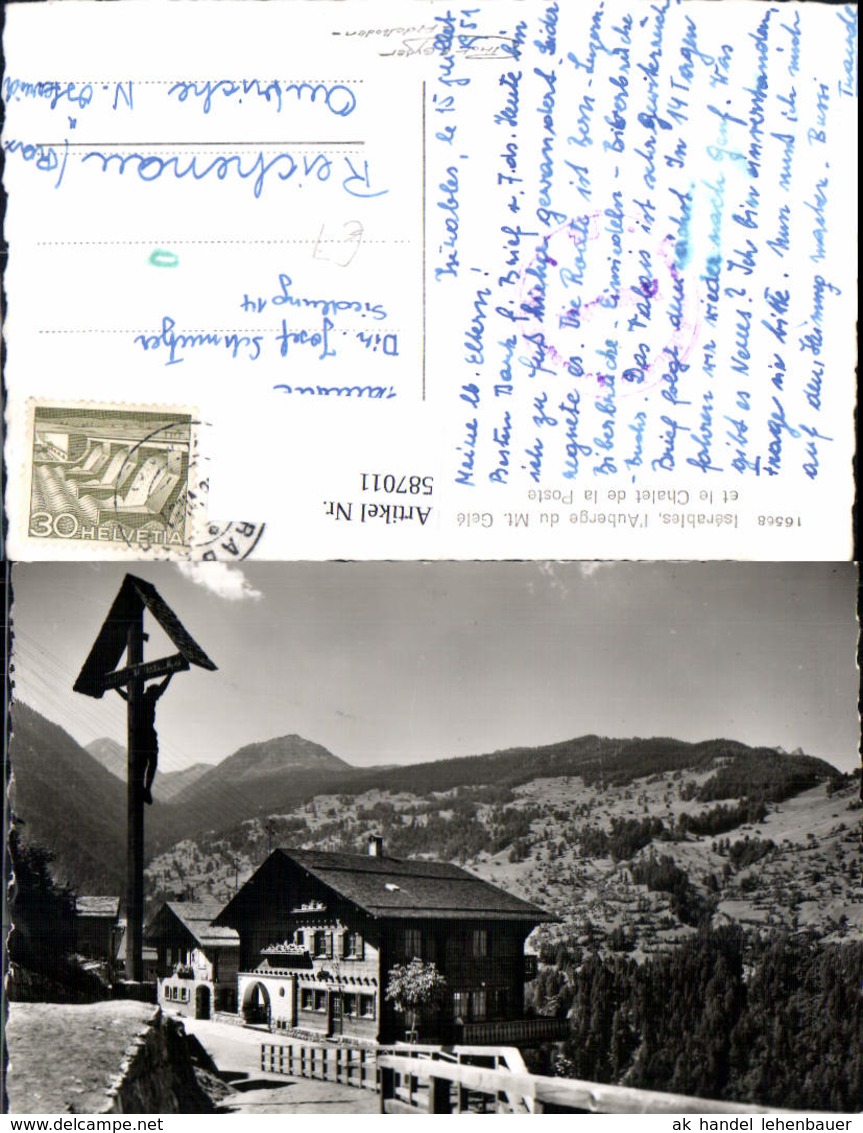 Isérables, le 15 juillet 1951
Meine lb. Eltern!
Besten Dank f. Brief v. 7. ds. Heute bin
ich zu Fuß hieher gewandert. Leider
regnete es. Die Route ist Bern - Luzern -
Biberbrücke - Einsiedeln - Biberbrücke
- Buchs. Das Valais ist sehr
Brief folgt demnächst. In 14 Tagen
fahren wir wieder nach Genf. Was
gibt es Neues? Ich bin einverstanden,
trage sie bitte. Nun muß ich mich
auf den Heimweg machen. Bussi
Dir. Josef Schmutzer
Siedlung 14
Reichenau (Rax
Autriche N. Österreich
30 HELVETIA
Artikel Nr.
587011
16568 Isérables, l'Auberge du Mt. Gelé
et le Chalet de la Poste
ak handel lehenbauer